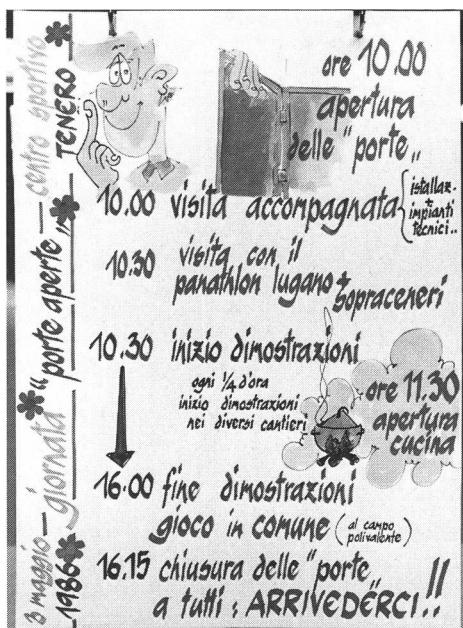 3 maggio — giornata "porte aperte" — centro sportivo
1986 TENERO
ore 10.00
apertura
delle "porte"
10.00 visita accompagnata
istallaz.
+
impianti
tecnici..
10.30 visita con il
panathlon lugano +
sopraceneri
10.30 inizio dimostrazioni
ogni 1/4 d'ora
inizio dimostrazioni
nei diversi cantieri
ore 11.30
apertura
cucina
16.00 fine dimostrazioni
gioco in comune (al campo
polivalente)
16.15 chiusura delle "porte"
a tutti : ARRIVEDERCI..!!